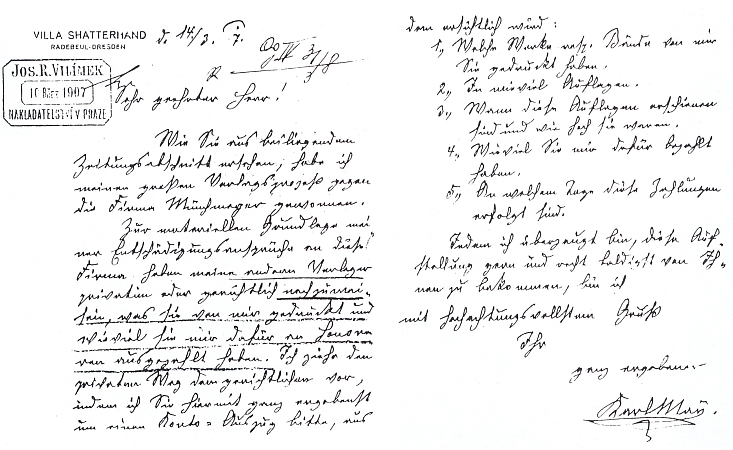 VILLA SHATTERHAND
RADEBEUL-DRESDEN
d. 14./3. 7.
JOS. R. VILÍMEK
16 BŘEZ 1907
NAKLADATELSTVÍ V PRAZE
Sehr geehrter Herr!
Wie Sie aus beiliegendem
Zeitungsabschnitt ersehen, habe ich
meinen großen Verlagsprozeß gegen
die Firma Münchmeyer gewonnen.
Zur materiellen Grundlage mei-
ner Entschädigungsansprüche an diese
Firma haben meine andern Verleger
privatim oder gerichtlich nachzuwei-
sen, was sie von mir gedruckt und
wieviel sie mir dafür an Honora-
ren ausgezahlt haben. Ich ziehe den
privaten Weg dem gerichtlichen vor,
indem ich Sie hiermit ganz ergebenst
um einen Konto-Auszug bitte, aus
dem ersichtlich wird:
1., Welche Werke resp. Bände von mir
Sie gedruckt haben.
2., In wieviel Auflagen.
3., Wann diese Auflagen erschienen
sind und wie hoch sie waren.
4., Wieviel Sie mir dafür bezahlt
haben.
5., An welchem Tage diese Zahlungen
erfolgt sind.
Indem ich überzeugt bin, diese Auf-
stellung gern und recht baldigst von Ih-
nen zu bekommen, bin ich
mit hochachtungsvollstem Gruß
Ihr
ganz ergebener
Karl May.